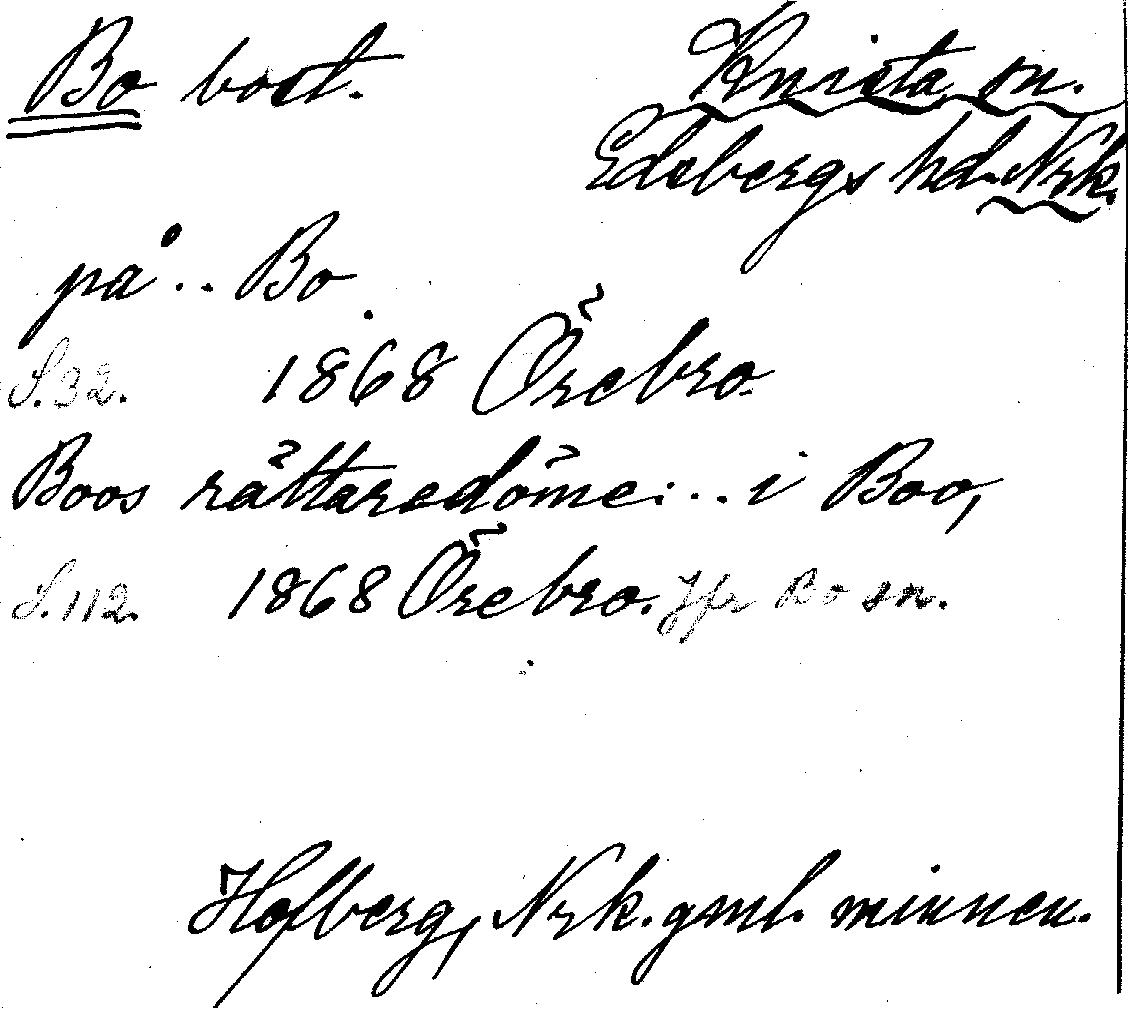 Bo bost. Knista sn.
Edsbergs hd. Nrk.
på .. Bo
S. 32. 1868 Örebro.
Boos rättaredöme: .. i Boo,
S. 112. 1868 Örebro. Jfr Bo sn.
Hofberg, Nrk. gml. minnen.